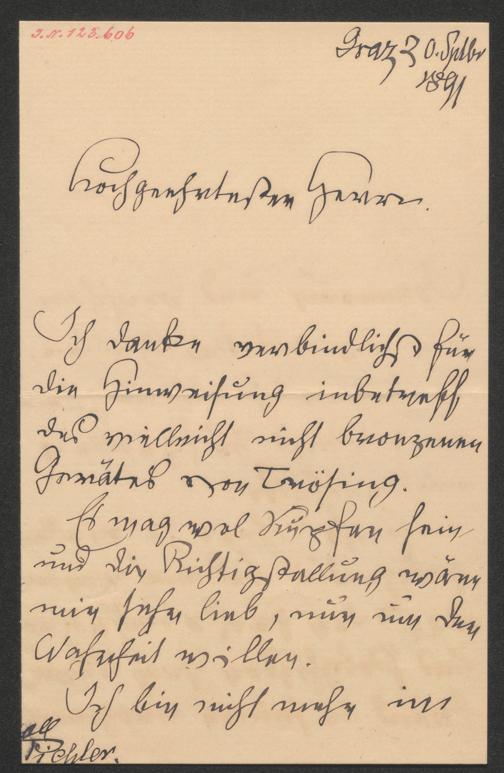 J.N. 123.606
Graz 30. Sptbr
1891
Hochgeehrtester Herr.
Ich danke verbindlichst für
die Hinweisung inbetreff
des vielleicht nicht bronzenen
Gerätes von Trösing.
Es mag wol Kupfer sein
und die Richtigstellung wäre
mir sehr lieb, nur um der
Wahrheit willen.
Ich bin nicht mehr im
Pichler.